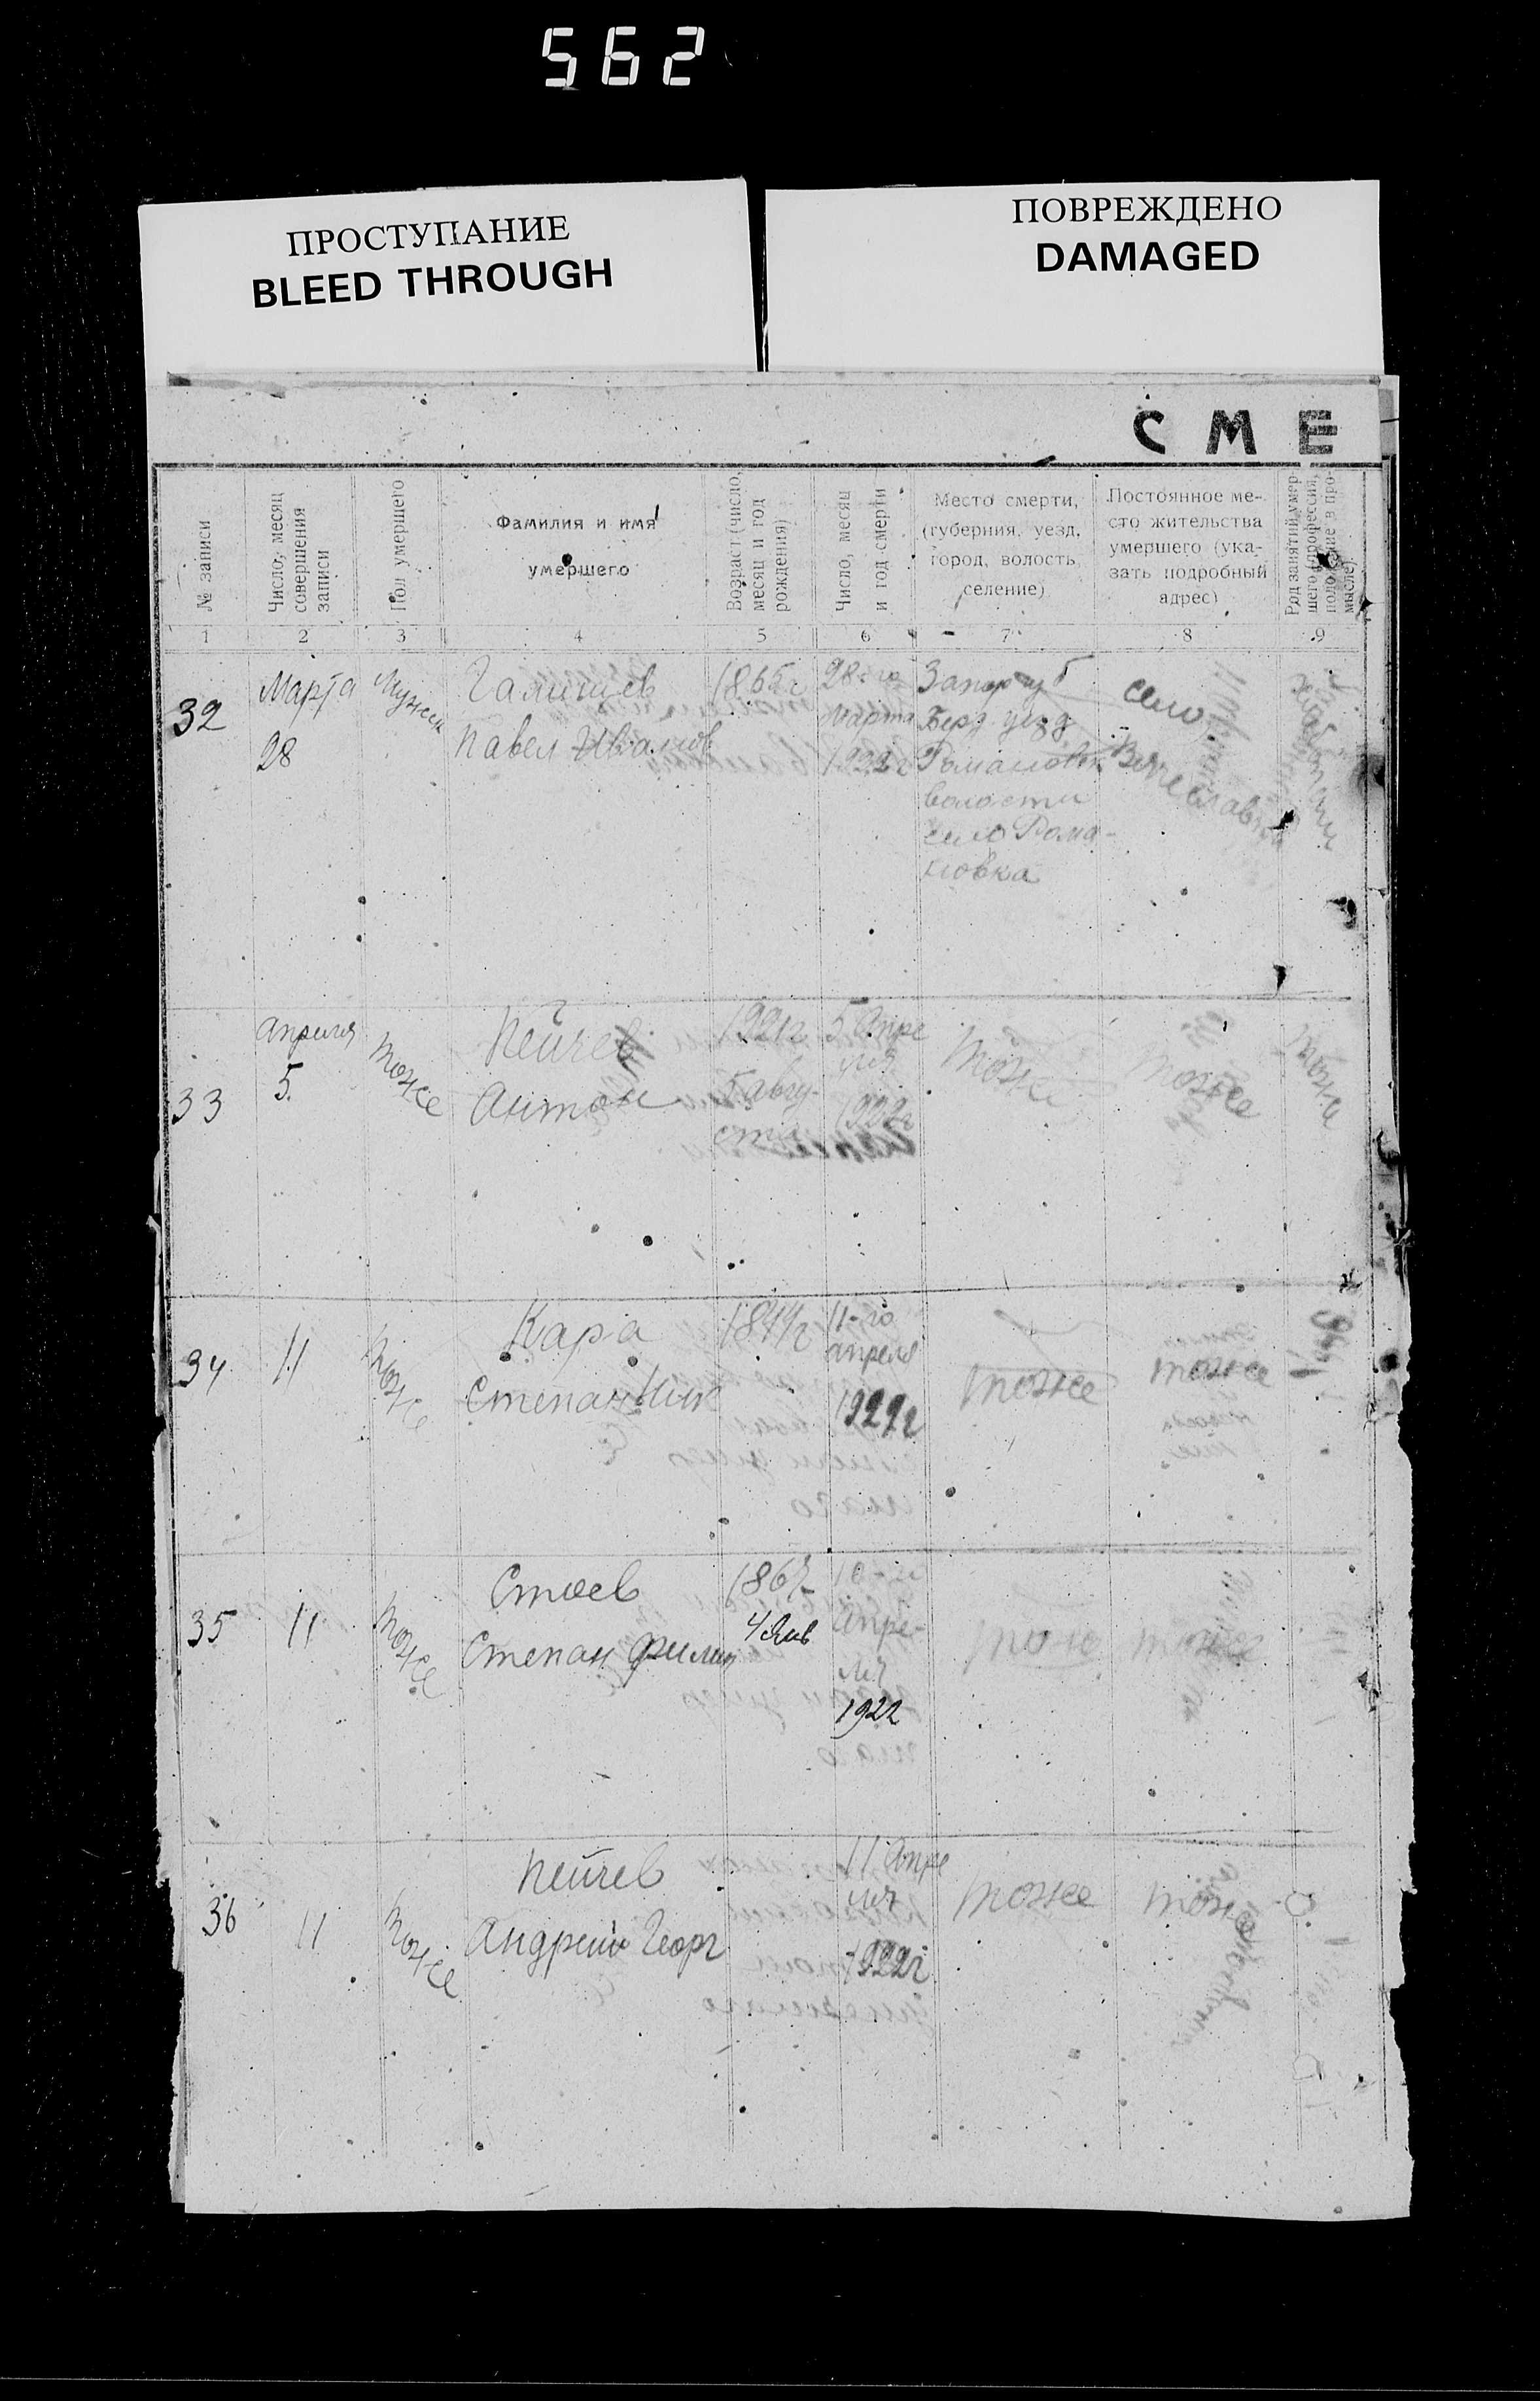 562
ПРОСТУПАНИЕ
BLEED THROUGH
ПОВРЕЖДЕНО
DAMAGED
СМЕ
№ записи
Число, месяц
совершения
записи
Пол умершего
Фамилия и имя
умершего
Возраст (число,
месяц и год
рождения)
Число, месяц
и год смерти
Место смерти,
(губерния, уезд,
город, волость,
селение)
Постоянное ме-
сто жительства
умершего (ука-
зать подробный
адрес)
Род занятий умер-
шего (профессия,
положение в про-
мысле)
1 2 3 4 5 6 7 8 9
32
Марта
28
Мужск
Павел Иванов
1865г
28-го
марта
1922г
Запор губ
Берд уезд
Романовск
волости
село Рома-
новка
село
33
апреля
5.
тоже
Пейчев
Антон
1921г
5 авгу-
ста
5 Апре
ля
1922г
тоже
тоже
тоже
34
11
тоже
Кара
Степан Ник
1844г
11-го
апреля
1922г
тоже
тоже
35
11
тоже
Стоев
Степан Филип
1867
4 Янв
10-го
Апре-
ля
1922
тоже
тоже
36
11
тоже
Пейчев
Андрей Георг
11 Апре
ля
1922г
тоже
тоже